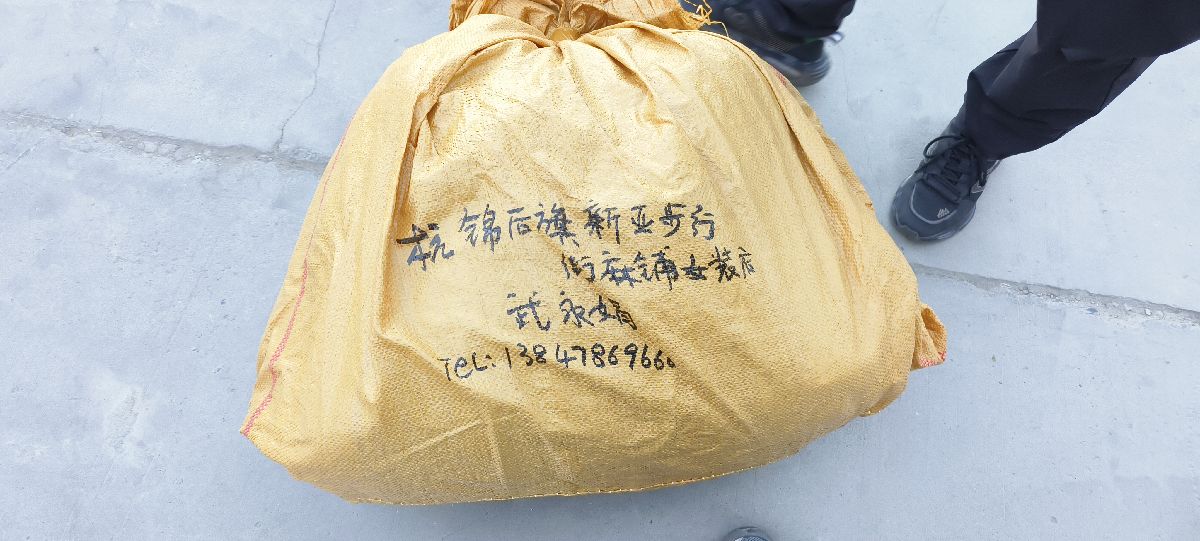 杭锦后旗新亚步行
街麻铺女装店
武永娟
TeL: 13847869666